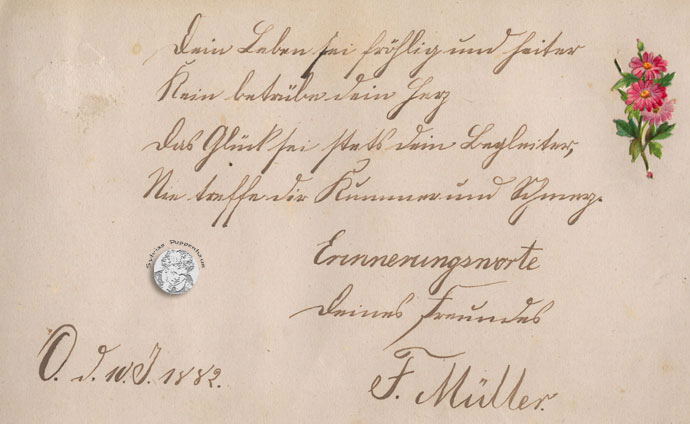 Dein Leben sei fröhlig und heiter
Kein betrübe dein Herz
Das Glück sei stets dein Begleiter,
Nie treffe dir Kummer und Schmerz.
Erinnerungsworte
Deines Freundes
F. Müller.
O. d. 10. J. 1882.
Sylvias Puppenhaus